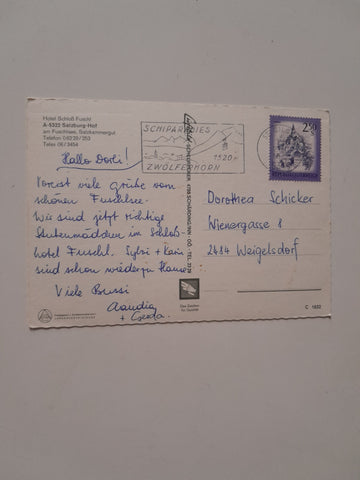 Hotel Schloß Fuschl
A-5322 Salzburg-Hof
am Fuschlsee, Salzkammergut
Telefon 06229/253
Telex 06/3454
Hallo Dorli!
Vorerst viele Grüße vom
schönen Fuschlsee.
Wir sind jetzt richtige
Stubenmädchen im Schloß-
hotel Fuschl. Sylvi + Karin
sind schon wieder zu Hause.
Viele Bussi
Claudia
+ Gerda
SCHIPARADIES
1520 m
ZWÖLFERHORN
2.50
REPUBLIK ÖSTERREICH
Dorothea Schicker
Wienergasse 8
2484 Weigelsdorf
Das Zeichen
für Qualität
C 1652